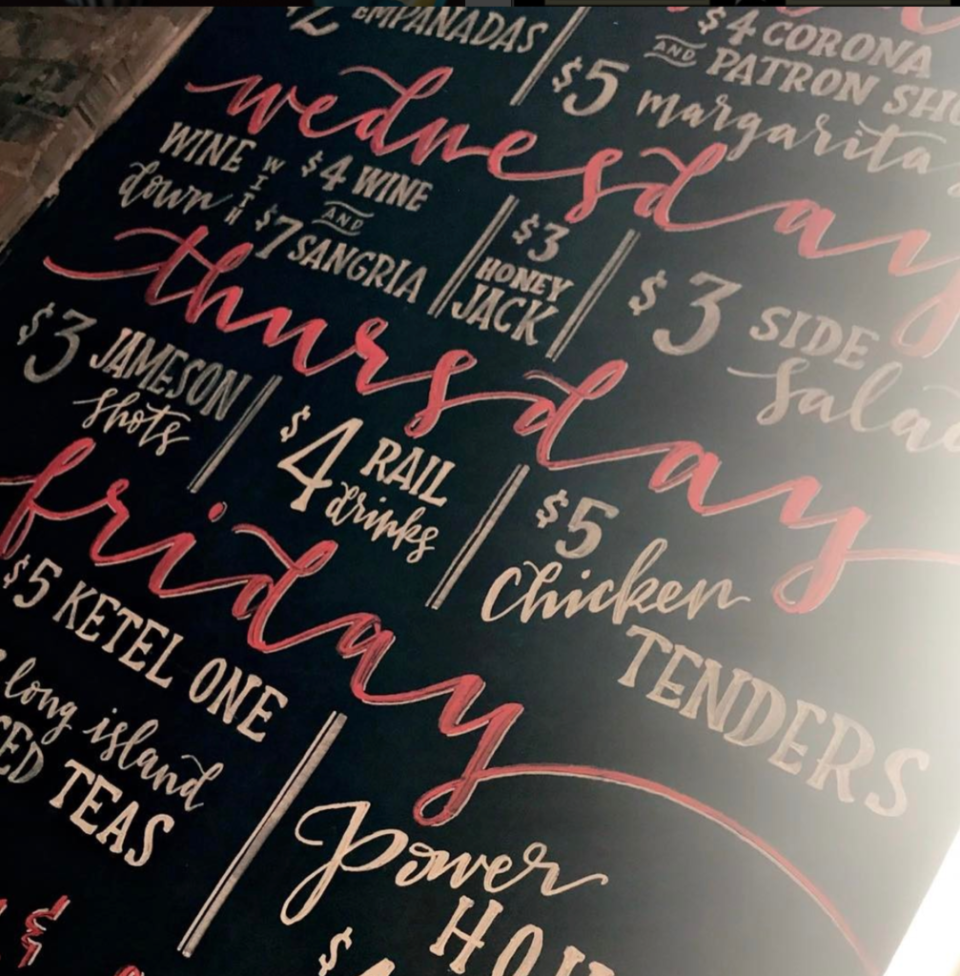 $2 EMPANADAS
$4 CORONA
AND PATRON
$5 margarita
wednesday
WINE down WITH
$4 WINE
AND
$7 SANGRIA
$3
HONEY
JACK
$3 SIDE
Salad
thursday
$3 JAMESON
shots
$4 RAIL
drinks
$5
Chicken
TENDERS
friday
$5 KETEL ONE
long island
TEAS
Power
&
$